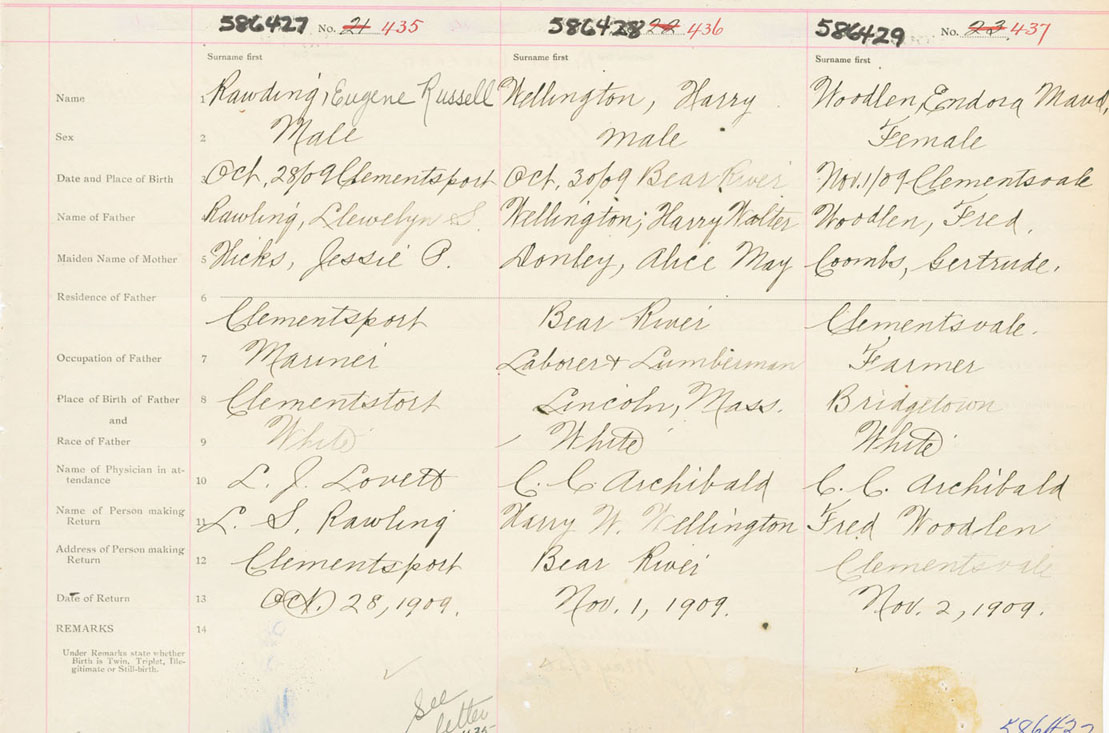 586427 No. 21 435 586428 22 436 586429 No. 23 437
Surname first Surname first Surname first
Name 1 Rawding, Eugene Russell Wellington, Harry Woodlen, Endora Maud,
Sex 2 Male Male Female
Date and Place of Birth 3 Oct, 28/09 Clementsport Oct, 30/09 Bear River Nov. 1/09 Clementsvale
Name of Father Rawling, Llewelyn S. Wellington, Harry Walter Woodlen, Fred.
Maiden Name of Mother 5 Hicks, Jessie P. Donley, Alice May Coombs, Gertrude.
Residence of Father 6
Clementsport Bear River Clementsvale.
Occupation of Father 7 Mariner Laborer & Lumberman Farmer
Place of Birth of Father 8 Clementstort Lincoln, Mass. Bridgetown
and
Race of Father 9 White White White
Name of Physician in at-
tendance 10 L. J. Lovett C. C. Archibald C. C. Archibald
Name of Person making
Return 11 L. S. Rawling Harry W. Wellington Fred Woodlen
Address of Person making
Return 12 Clementsport Bear River Clementsvale
Date of Return 13 Oct. 28, 1909. Nov. 1, 1909. Nov. 2, 1909.
REMARKS 14
Under Remarks state whether
Birth is Twin, Triplet, Ille-
gitimate or Still-birth.
See
letter